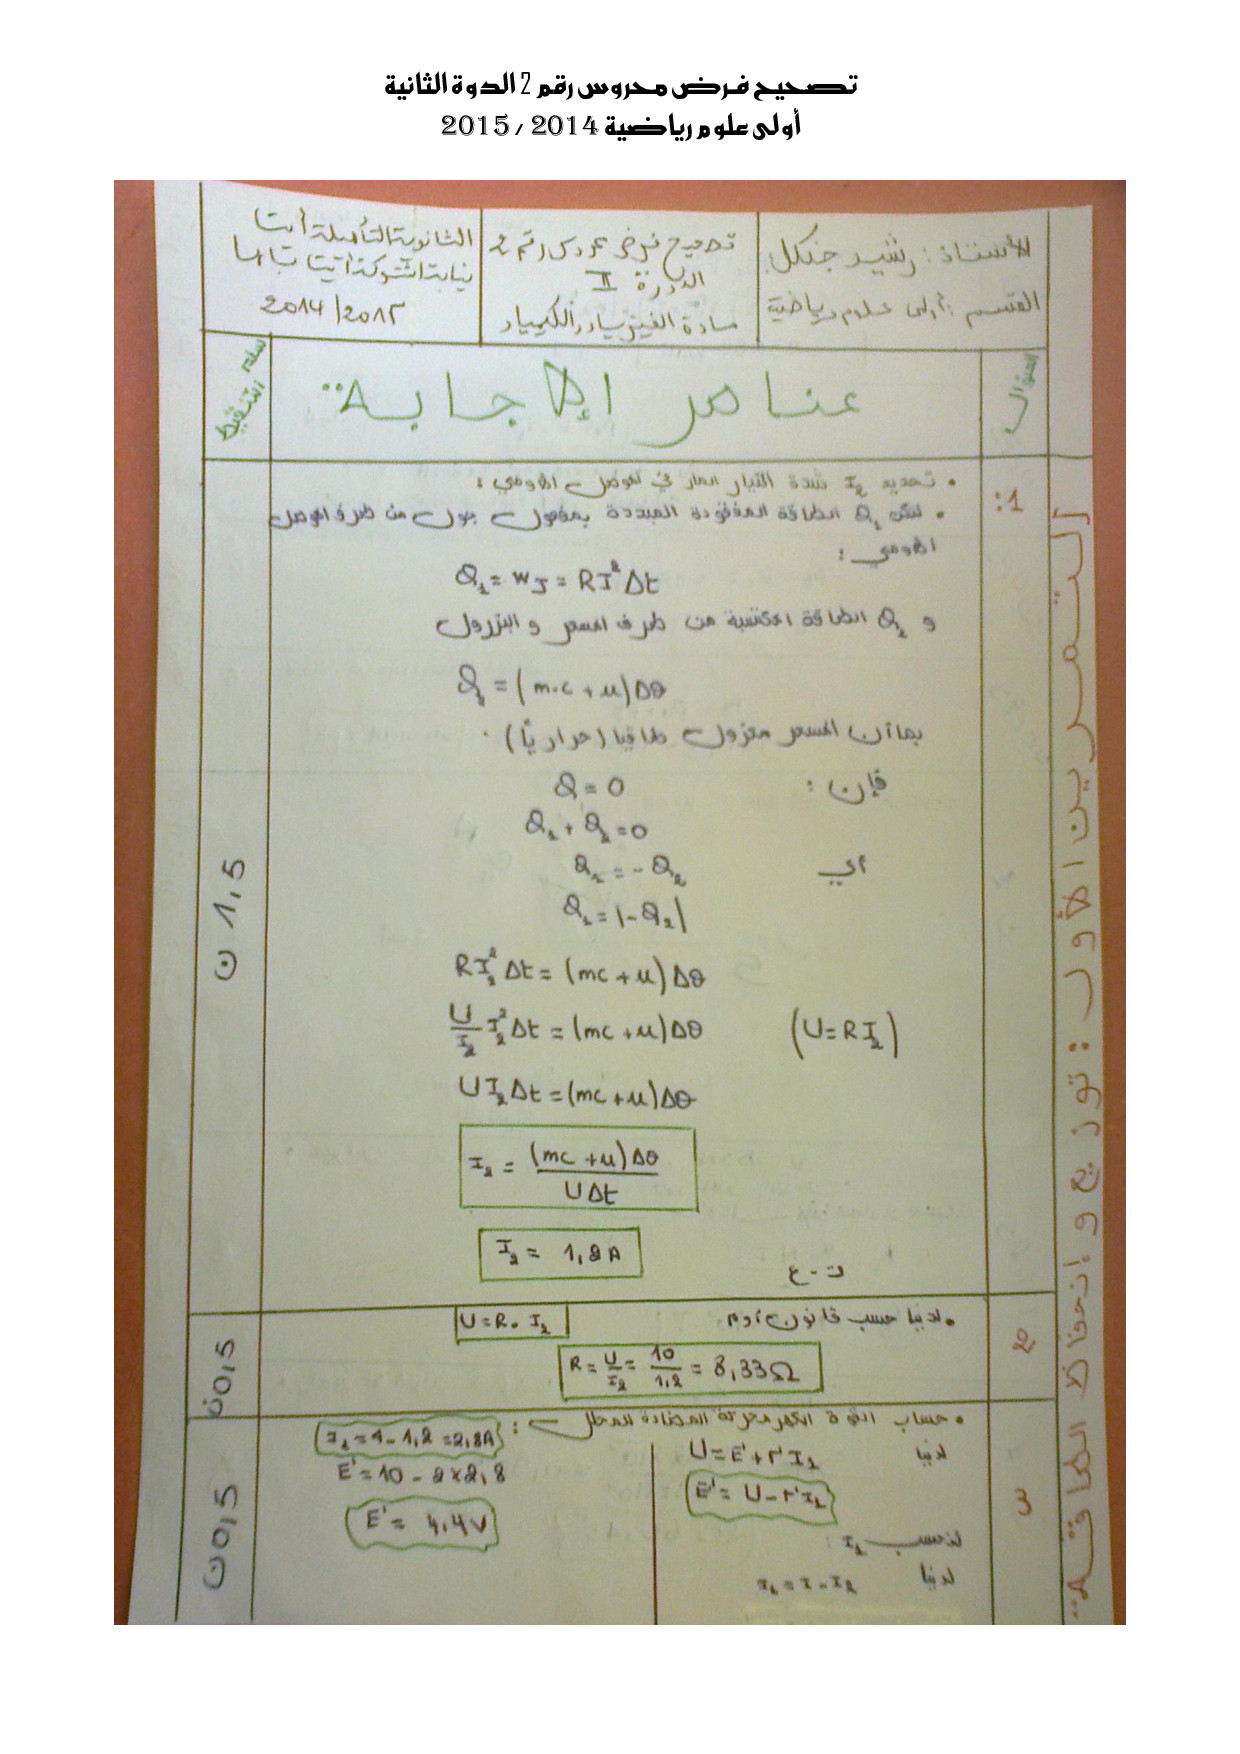 تصحيح فرض محروس رقم 2 الدوة الثانية
أولى علوم رياضية 2014 / 2015
الأستاذ : رشيد جنكل
القسم : أولى علوم رياضية
تصحيح فرض محروس رقم 2
الدورة II
مادة الفيزياء والكيمياء
الثانوية التأهيلية أيت
نيابة اشتوكة أيت باها
2014/2015
السؤال
عناصر الإجابة
سلم التنقيط
التمرين الأول : توزيع و إنحفاظ الطاقة
1:
• تحديد I2 شدة التيار المار في الموصل الأومي :
• لتكن Q1 الطاقة المفقودة المبددة بمفعول جول من طرف الموصل
الأومي :
Q1 = WJ = RI²Δt
و Q2 الطاقة المكتسبة من طرف المسعر و البترول
Q2 = (m.c + μ)Δθ
بما أن المسعر معزول طاقيا (حراريًا) .
فإن : Q = 0
Q1 + Q2 = 0
أي Q1 = - Q2
Q1 = |-Q2|
RI2²Δt = (mc + μ)Δθ
U/I2 I2²Δt = (mc + μ)Δθ (U = RI2)
UI2Δt = (mc + μ)Δθ
I2 = (mc + μ)Δθ / UΔt
ت - ع I2 = 1,2A
1,5 ن
2
• لدينا حسب قانون أوم U = R . I2
R = U/I2 = 10/1,2 = 8,33Ω
0,5 ن
3
• حساب القوة الكهرمحركة المضادة للمحلل :
لدينا U = E' + r'I1
E' = U - r'I1
لنحسب I1 :
لدينا I1 = I - I2
I1 = 4 - 1,2 = 2,8A
E' = 10 - 2 x 2,8
E' = 4,4V
0,5 ن